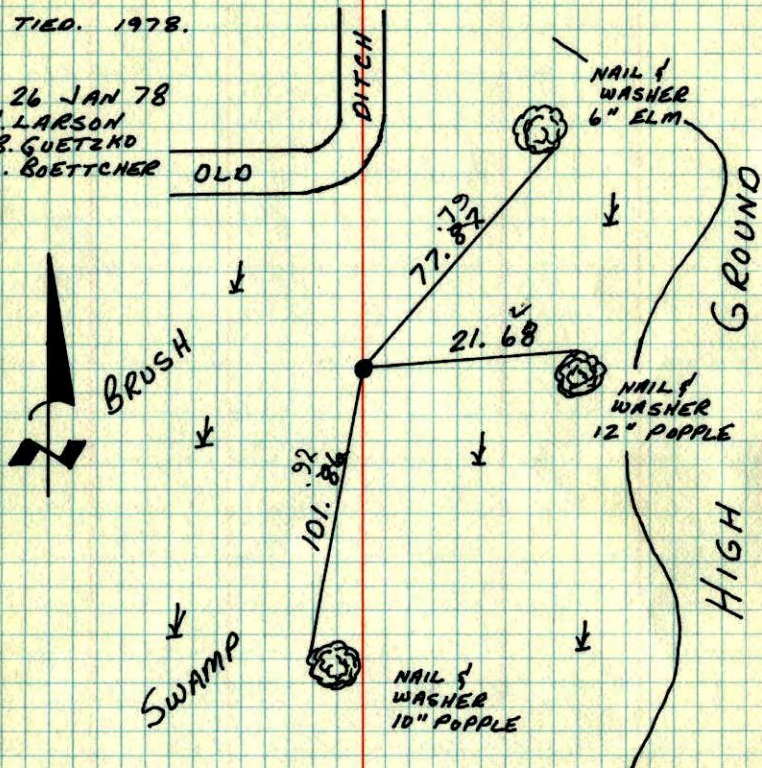 TIED. 1978.
26 JAN 78
LARSON
B. GUETZKO
. BOETTCHER
OLD
DITCH
NAIL &
WASHER
6" ELM
.79
77.87
21.68
NAIL &
WASHER
12" POPPLE
BRUSH
.92
101.86
SWAMP
NAIL &
WASHER
10" POPPLE
HIGH GROUND